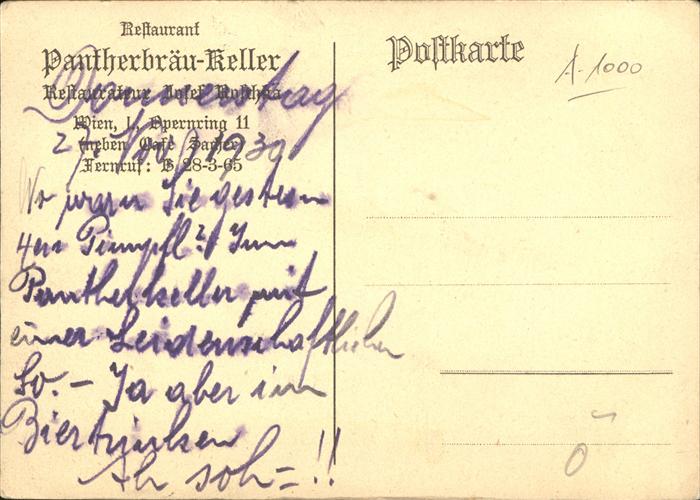 Restaurant
Pantherbräu-Keller
Restaurateur Josef
Wien, I., Opernring 11
(neben Café
Fernruf: B 28-3-65
Postkarte
A-1000
Donnerstag
27. Nov 1930
Wo waren Sie gestern
Herr Pimpfl? Im
Pantherkeller mit
einer Leidenschaftlichen
So. - Ja aber im
Biertrinken
Ah soh = !!